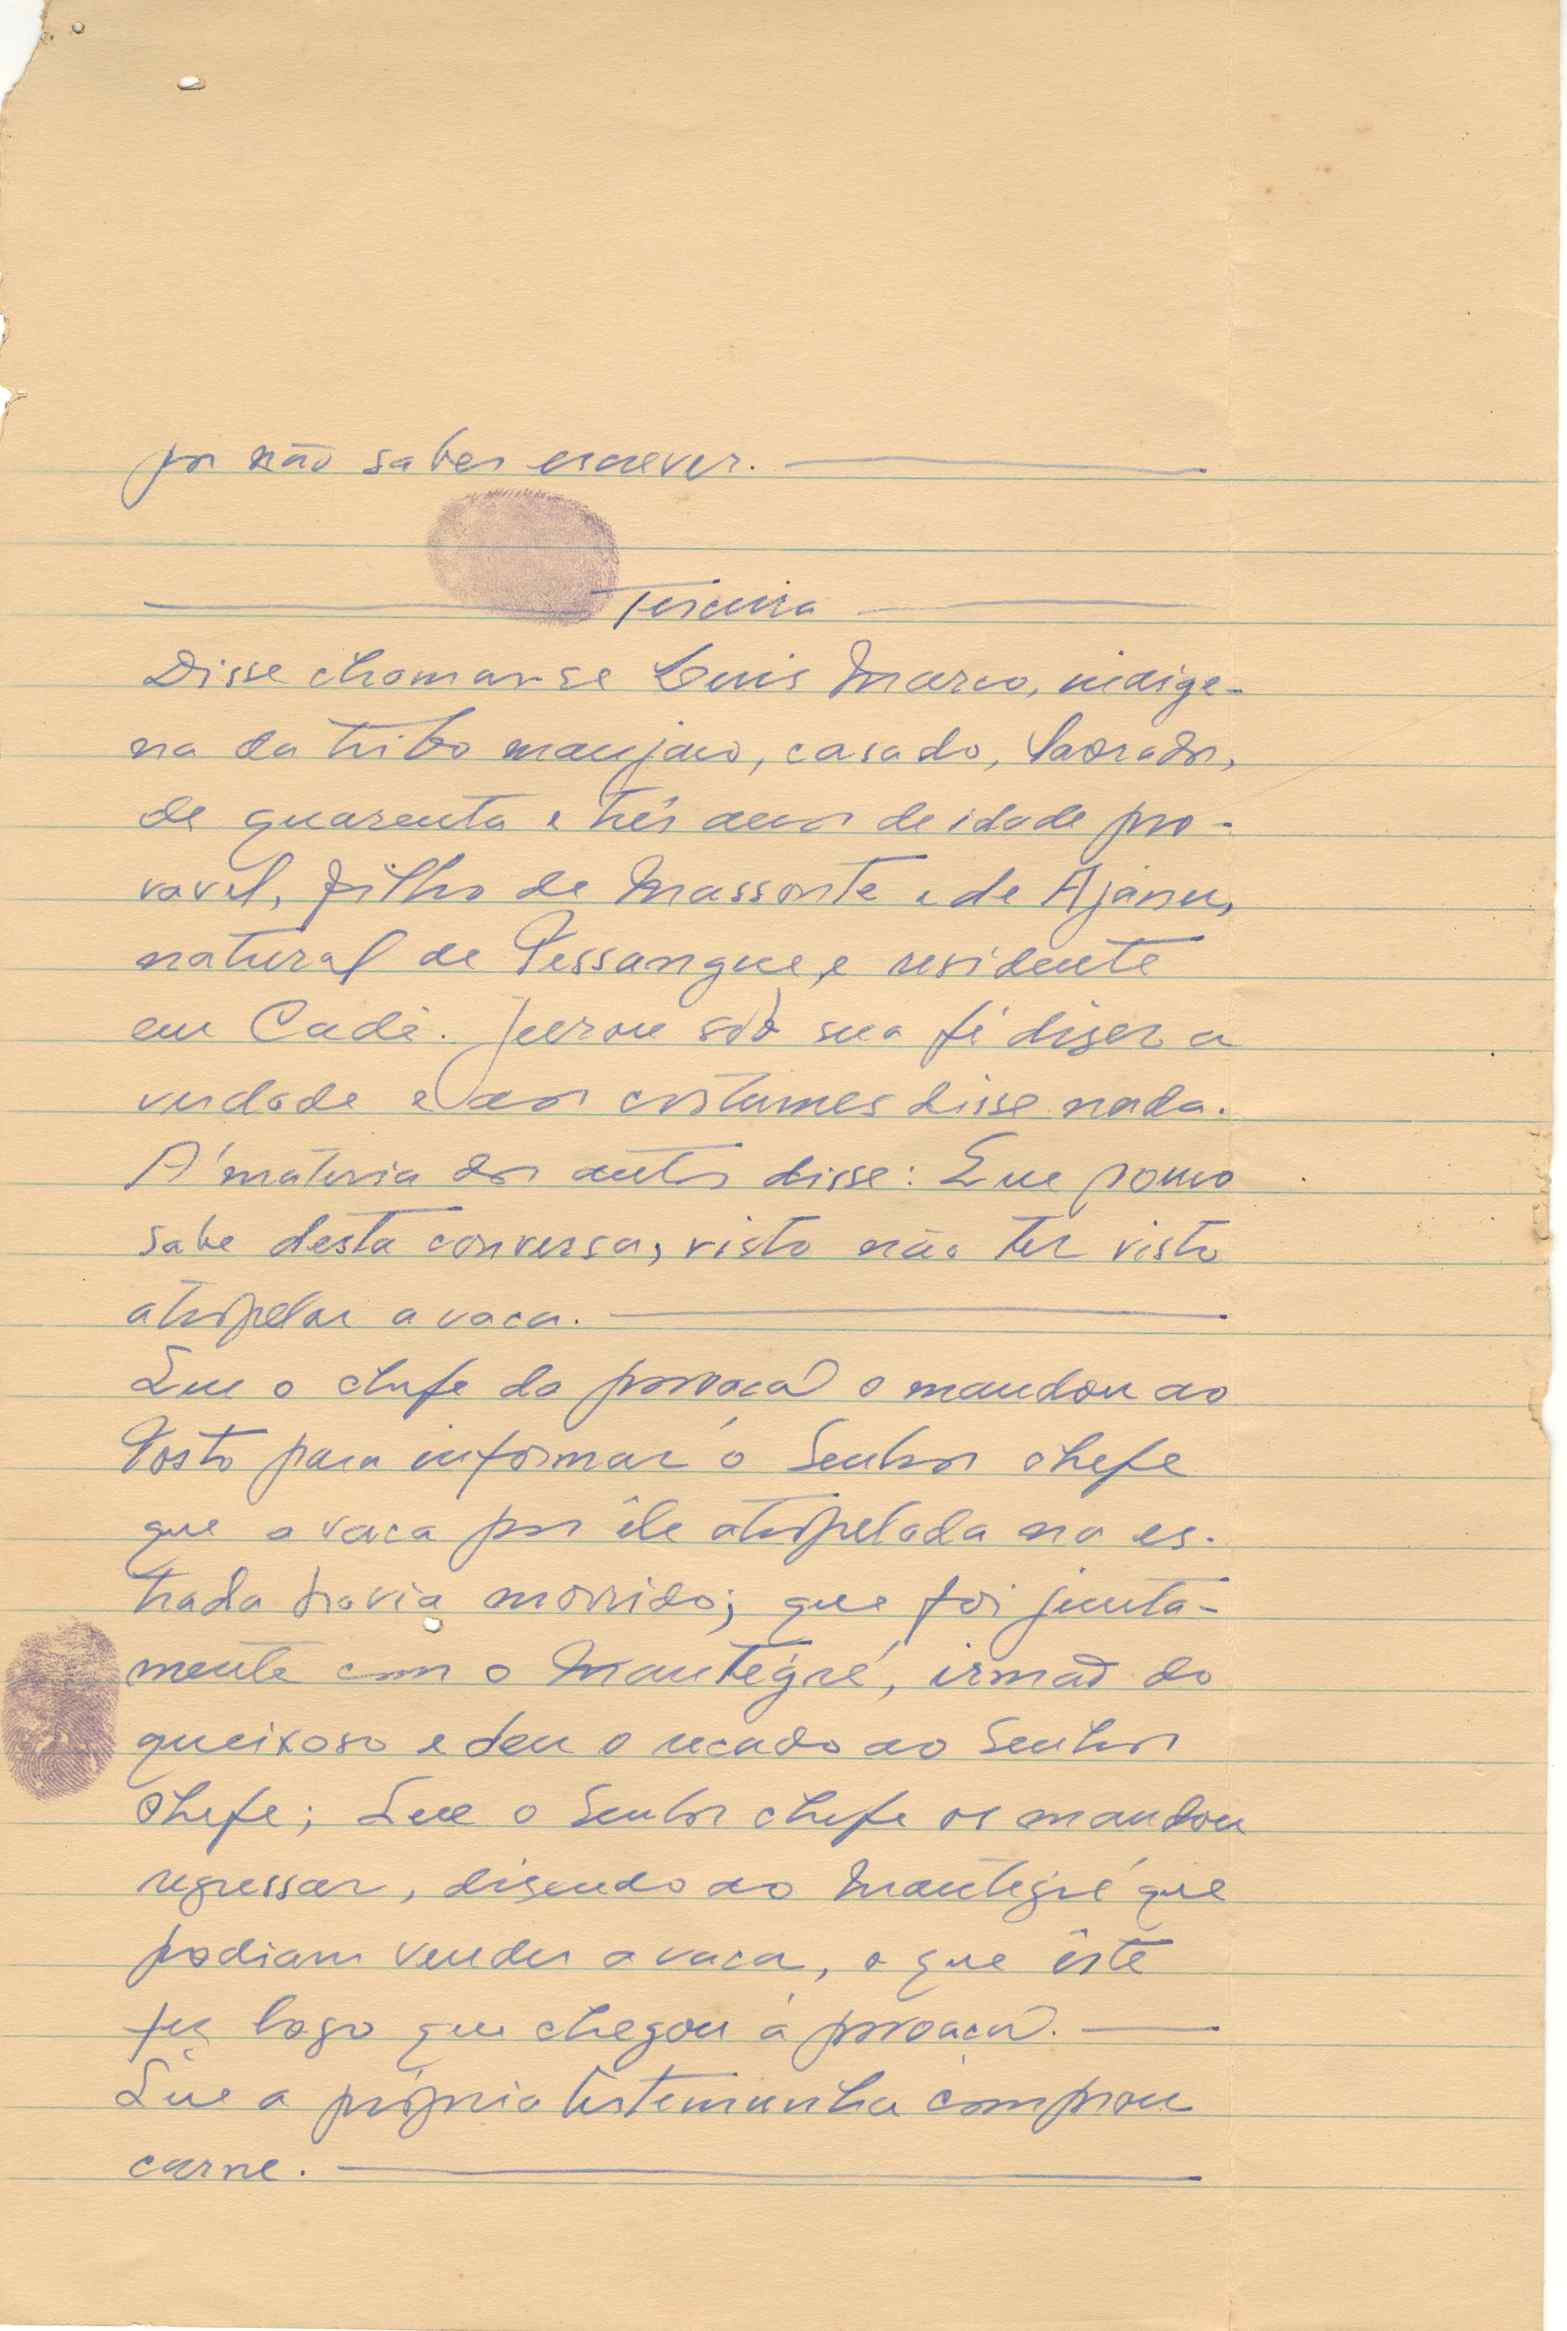 por não saber escrever.
Terceira
Disse chamar-se Luis Marco, indige-
na da tribo manjaco, casado, lavrador,
de quarenta e três anos de idade pro-
vavel, filho de Massonte e de Ajanu,
natural de Pessangue, e residente
em Cadé. Jurou sob sua fé diser a
verdade e aos costumes disse nada.
A' matéria dos autos disse: Que pouco
sabe desta conversa, visto não ter visto
atropelar a vaca.
Que o chefe da povoacã o mandou ao
Posto para informar o Senhor chefe
que a vaca por êle atropelada na es-
trada havia morrido; que foi junta-
mente com o Mantegré, irmão do
queixoso e deu o recado ao Senhor
chefe; Que o Senhor chefe os mandou
regressar, disendo ao Mantegré que
podiam vender a vaca, o que êste
fez logo que chegou á povoacã.
Que a própria testemunha comprou
carne.